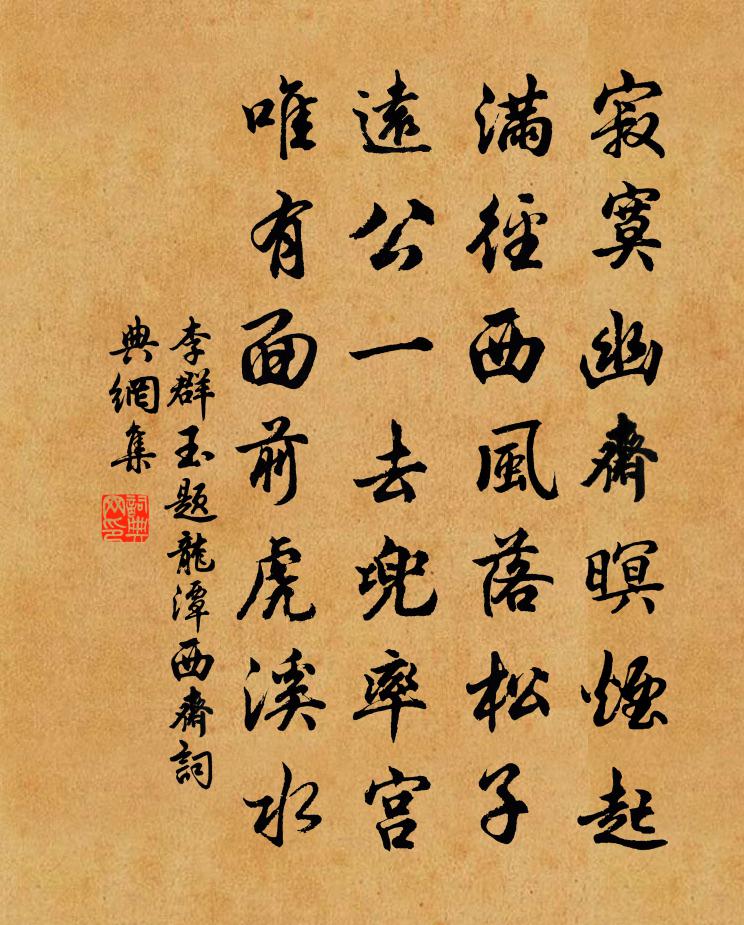 寂寞幽齋暝煙起
滿徑西風落松子
遠公一去兜率宮
唯有面前虎溪水
李群玉題龍潭西齋詞
典網集
詞典
网印